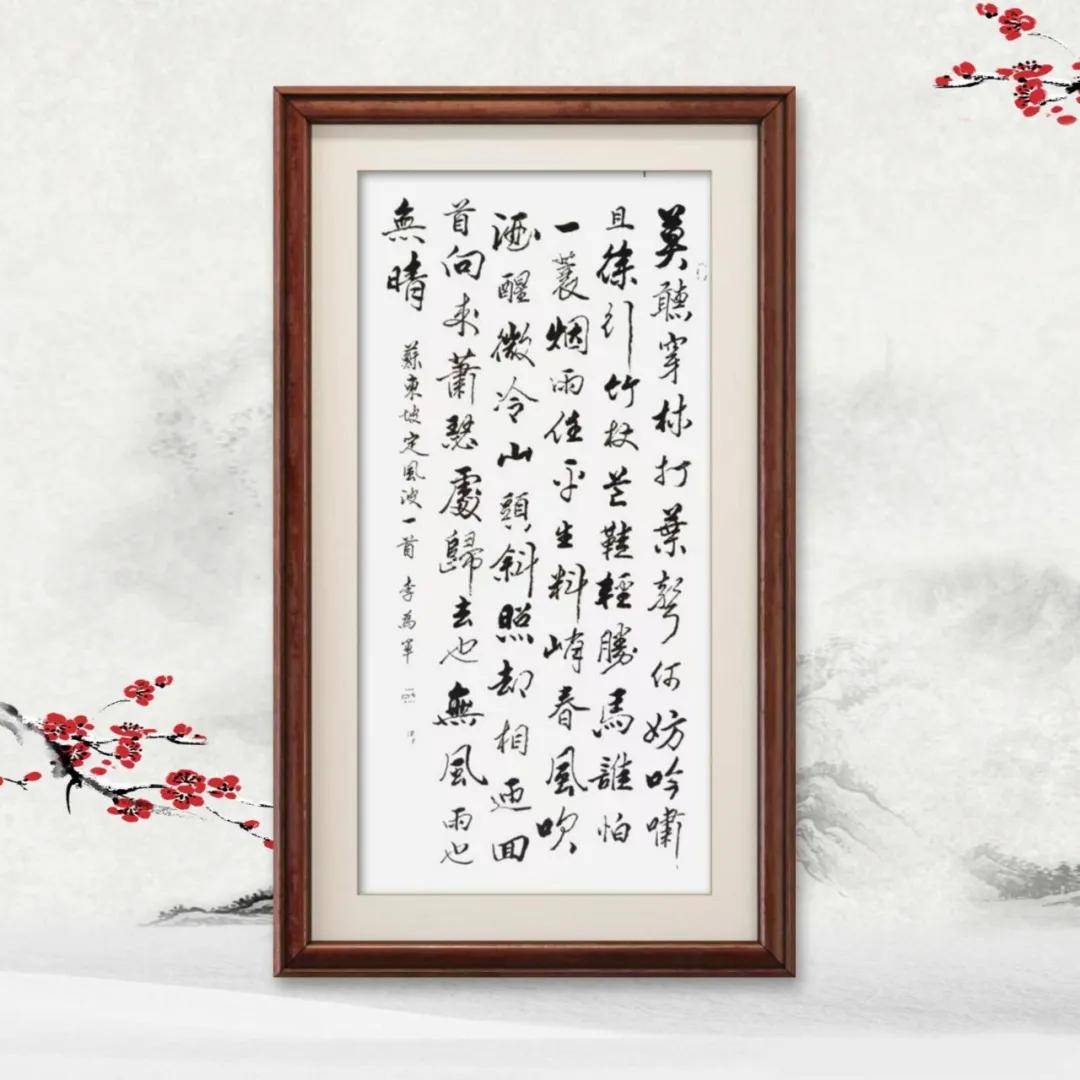 莫聽穿林打葉聲何妨吟嘯
且徐行竹杖芒鞋輕勝馬誰怕
一蓑烟雨任平生料峭春風吹
酒醒微冷山頭斜照却相迎回
首向來蕭瑟處歸去也無風雨也
無晴
蘇東坡定風波一首 李為軍